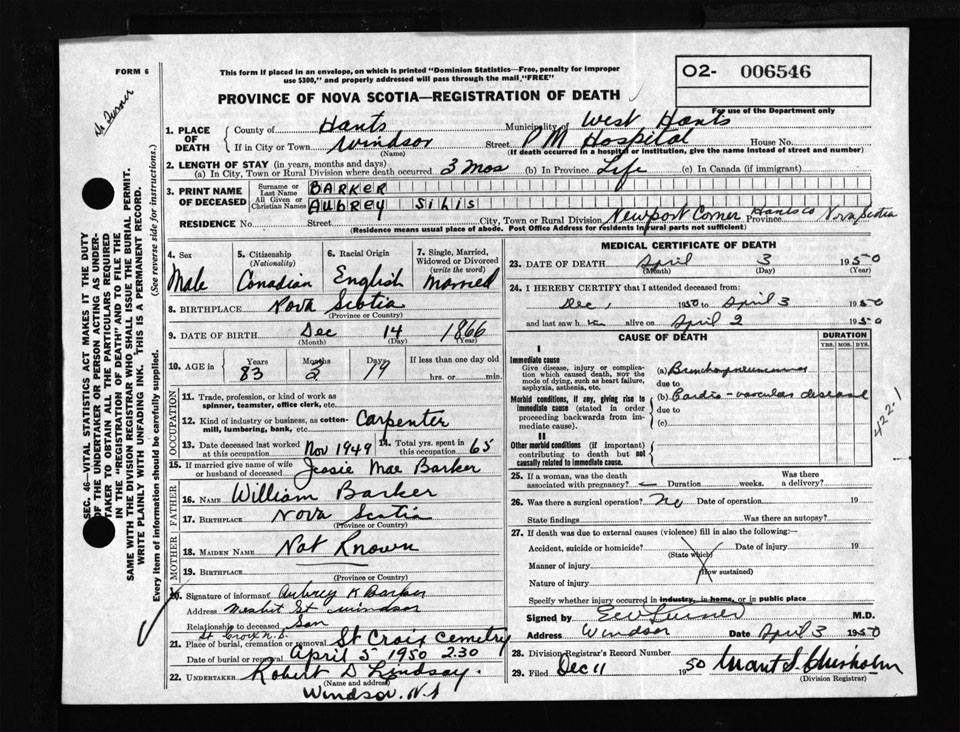 FORM 6
This form if placed in an envelope, on which is printed "Dominion Statistics—Free, penalty for improper
use $300," and properly addressed will pass through the mail "FREE"
O2- 006546
For use of the Department only
PROVINCE OF NOVA SCOTIA—REGISTRATION OF DEATH
1. PLACE OF DEATH County of Hants Municipality of West Hants
If in City or Town Windsor Street P M Hospital House No.
(Name) (If death occurred in a hospital or institution, give the name instead of street and number)
2. LENGTH OF STAY (in years, months and days)
(a) In City, Town or Rural Division where death occurred 3 Mos (b) In Province Life (c) In Canada (if immigrant)
3. PRINT NAME OF DECEASED Surname or Last Name BARKER
All Given or Christian Names AUBREY SILIS
RESIDENCE No. Street City, Town or Rural Division Newport Corner Hants Co Province Nova Scotia
(Residence means usual place of abode. Post Office Address for residents in rural parts not sufficient)
SEC. 46—VITAL STATISTICS ACT MAKES IT THE DUTY
OF THE UNDERTAKER OR PERSON ACTING AS UNDERTAKER
TO OBTAIN ALL THE PARTICULARS REQUIRED
IN THE "REGISTRATION OF DEATH" AND TO FILE THE
SAME WITH THE DIVISION REGISTRAR WHO SHALL ISSUE THE BURIAL PERMIT.
WRITE PLAINLY WITH UNFADING INK. THIS IS A PERMANENT RECORD.
Every item of information should be carefully supplied. (See reverse side for instructions.)
4. Sex Male
5. Citizenship (Nationality) Canadian
6. Racial Origin English
7. Single, Married, Widowed or Divorced (write the word) Married
8. BIRTHPLACE Nova Scotia
(Province or Country)
9. DATE OF BIRTH Dec 14 1866
(Month) (Day) (Year)
10. AGE in Years 83 Months 2 Days 19 If less than one day old hrs. or min.
OCCUPATION
11. Trade, profession, or kind of work as spinner, teamster, office clerk, etc.
12. Kind of industry or business, as cotton-mill, lumbering, bank, etc. Carpenter
13. Date deceased last worked at this occupation Nov 1949 14. Total yrs. spent in this occupation 65
15. If married give name of wife or husband of deceased Jessie Mae Barker
FATHER
16. Name William Barker
17. BIRTHPLACE Nova Scotia
(Province or Country)
MOTHER
18. MAIDEN NAME Not Known
19. BIRTHPLACE
(Province or Country)
20. Signature of informant Aubrey K Barker
Address Nesbit St Windsor
Relationship to deceased Son
St Croix N.S.
21. Place of burial, cremation or removal St Croix Cemetry
Date of burial or removal April 5 1950 2.30
22. UNDERTAKER Robert D Lindsay.
(Name and address)
Windsor. N.S
MEDICAL CERTIFICATE OF DEATH
23. DATE OF DEATH April 3 1950
(Month) (Day) (Year)
24. I HEREBY CERTIFY that I attended deceased from:
Dec 1 1950 to April 3 1950
and last saw him alive on April 2 1950
CAUSE OF DEATH DURATION
YRS. MOS. DYS.
I
Immediate cause
Give disease, injury or complication which caused death, NOT the mode of dying, such as heart failure, asphyxia, asthenia, etc.
(a) Bronchopneumonia
due to
Morbid conditions, if any, giving rise to immediate cause (stated in order proceeding backwards from immediate cause)
(b) Cardio-vascular disease
due to
(c)
422-1
II
Other morbid conditions (if important) contributing to death but not causally related to immediate cause.
25. If a woman, was the death associated with pregnancy? Duration weeks. Was there a delivery?
26. Was there a surgical operation? no Date of operation 19
State findings Was there an autopsy?
27. If death was due to external causes (violence) fill in also the following:—
Accident, suicide or homicide? Date of injury 19
(State which)
Manner of injury
(How sustained)
Nature of injury
Specify whether injury occurred in industry, in home, or in public place
Signed by M.D.
Address Windsor Date April 3 1950
28. Division Registrar's Record Number
29. Filed Dec 11 1950 Chisholm
(Division Registrar)